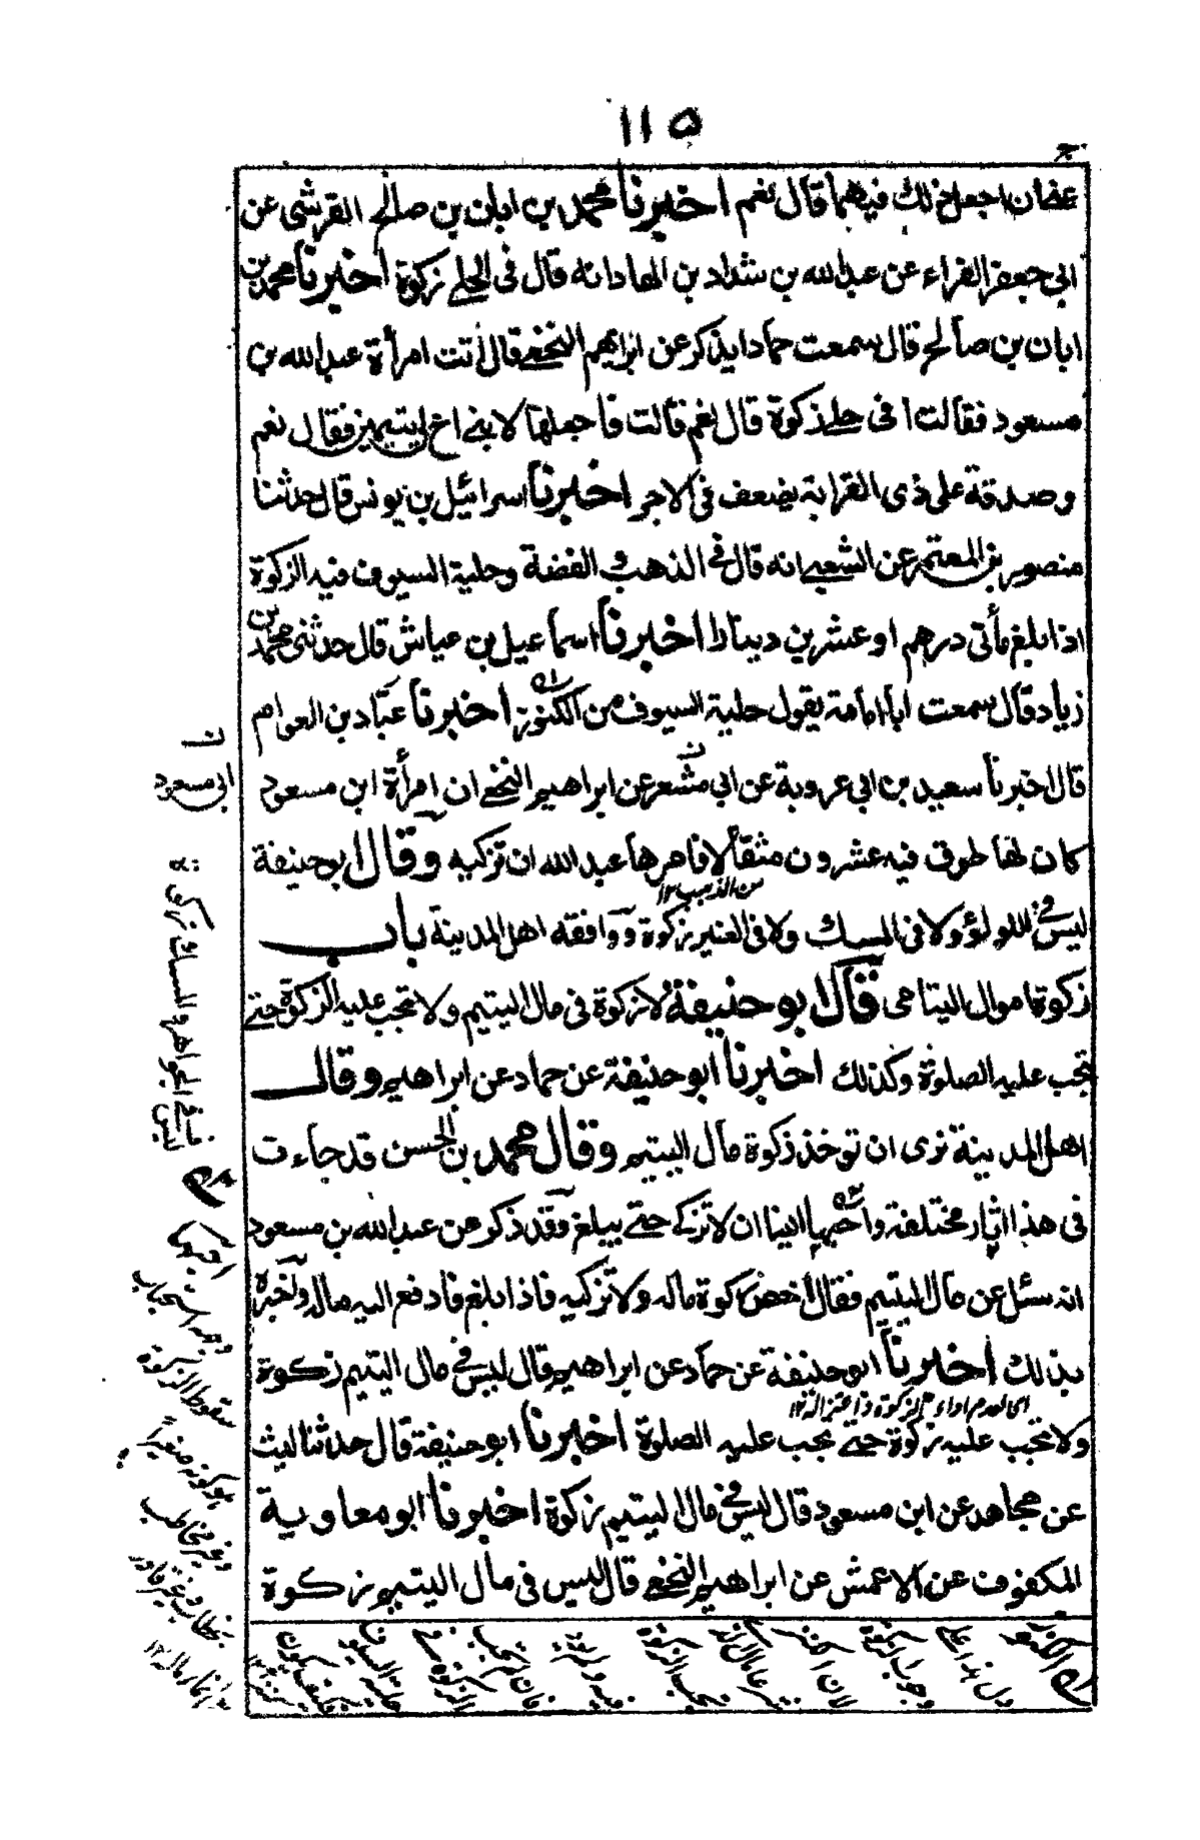 ١١٥
عفان اجعل ذلك فيهما قال نعم اخبرنا محمد بن ابان بن صالح القرشى عن
ابى جعفر الفراء عن عبد الله بن شداد بن الهاد انه قال فى الحلى زكوة اخبرنا محمد بن
ابان بن صالح قال سمعت حمادا يذكر عن ابراهيم النخعى قال أتت امرأة عبد الله بن
مسعود فقالت افى حلى زكوة قال نعم قالت فاجعلها لابنى اخ لى يتيمين فقال نعم
وصدقة على ذى القرابة يضعف فى الاجر اخبرنا اسرائيل بن يونس قال حدثنا
منصور بن المعتمر عن الشعبى انه قال فى الذهب والفضة وحلية السيوف فيه الزكوة
اذا بلغ مأتى درهم او عشرين دينارا اخبرنا اسماعيل بن عياش قال حدثنى محمد بن
زياد قال سمعت ابا امامة يقول حلية السيوف من الكنوز اخبرنا عباد بن العوام
قال اخبرنا سعيد بن ابى عروبة عن ابى مشعر عن ابراهيم النخعى ان امرأة ابن مسعود
كان لها طوق فيه عشرون مثقالا فامرها عبد الله ان تزكيه وقال ابو حنيفة
من الذهب ١٢
ليس فى اللولؤ ولا فى المسك ولا فى العنبر زكوة ووافقه اهل المدينة باب
زكوة اموال اليتامى قال ابو حنيفة لا زكوة فى مال اليتيم ولا تجب عليه الزكوة حتى
تجب عليه الصلوة وكذلك اخبرنا ابو حنيفة عن حماد عن ابراهيم وقال
اهل المدينة نرى ان توخذ زكوة مال اليتيم وقال محمد بن الحسن قد جاءت
فى هذا اثار مختلفة واحبها الينا ان لا تزكى حتى يبلغ وقد ذكر عن عبد الله بن مسعود
انه سئل عن مال اليتيم فقال أحص زكوة ماله ولا تزكيه فاذا بلغ فادفع اليه ماله واخبره
بذلك اخبرنا ابو حنيفة عن حماد عن ابراهيم قال ليس فى مال اليتيم زكوة
ولا تجب عليه زكوة حتى تجب عليه الصلوة اخبرنا ابو حنيفة قال حدثنا ليث
عن مجاهد عن ابن مسعود قال ليس فى مال اليتيم زكوة اخبرنا ابو معاوية
المكفوف عن الاعمش عن ابراهيم النخعى قال ليس فى مال اليتيم زكوة
ن
ابى مسعود